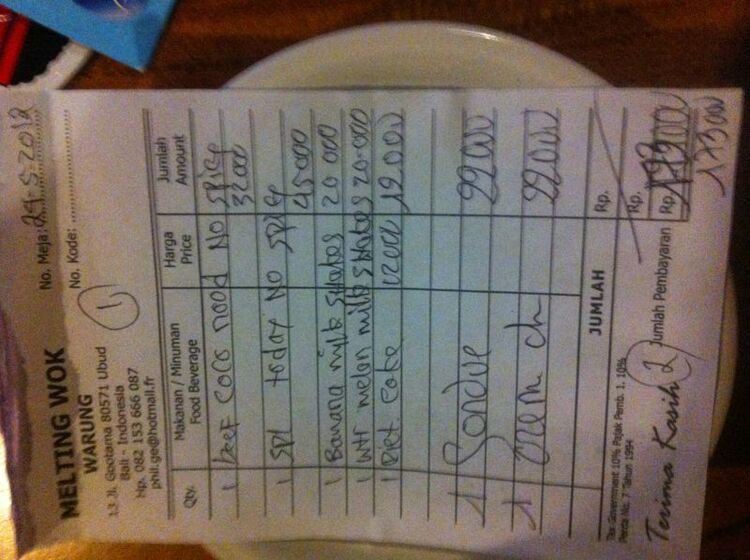 MELTING WOK
WARUNG
13 Jl. Gootama 80571 Ubud
Bali - Indonesia
Hp. 082 153 666 087
phil.ge@hotmail.fr
No. Meja: 29-5-2012
No. Kode:
1
Qty. Makanan / Minuman Food Beverage Harga Price Jumlah Amount
1 beef coco nood NO spicy 32000
1 Spl today NO spicy 45000
1 Banana milk shakes 20 000
1 wtr melon milk shakes 20-000
1 Diet coke 12000 12.000
1 22000
1 22000
JUMLAH Rp.
Tax Government 10% Pajak Pemb. 1, 10%
Perda No. 7 Tahun 1994
Rp.
Terima Kasih 2 Jumlah Pembayaran Rp.
173 000